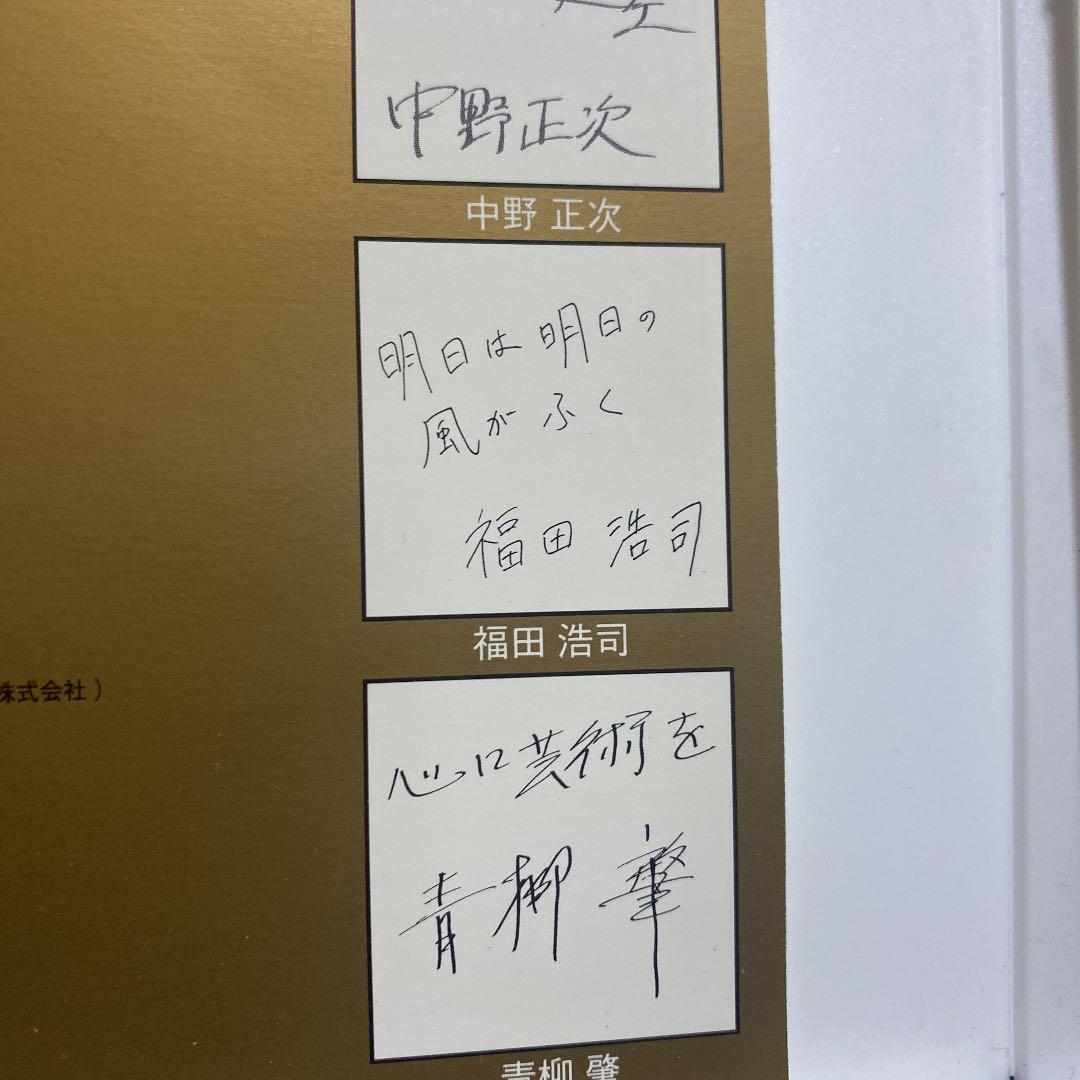 中野正次
中野 正次
明日は明日の
風がふく
福田 浩司
福田 浩司
株式会社）
心に芸術を
青柳 肇
青柳 肇